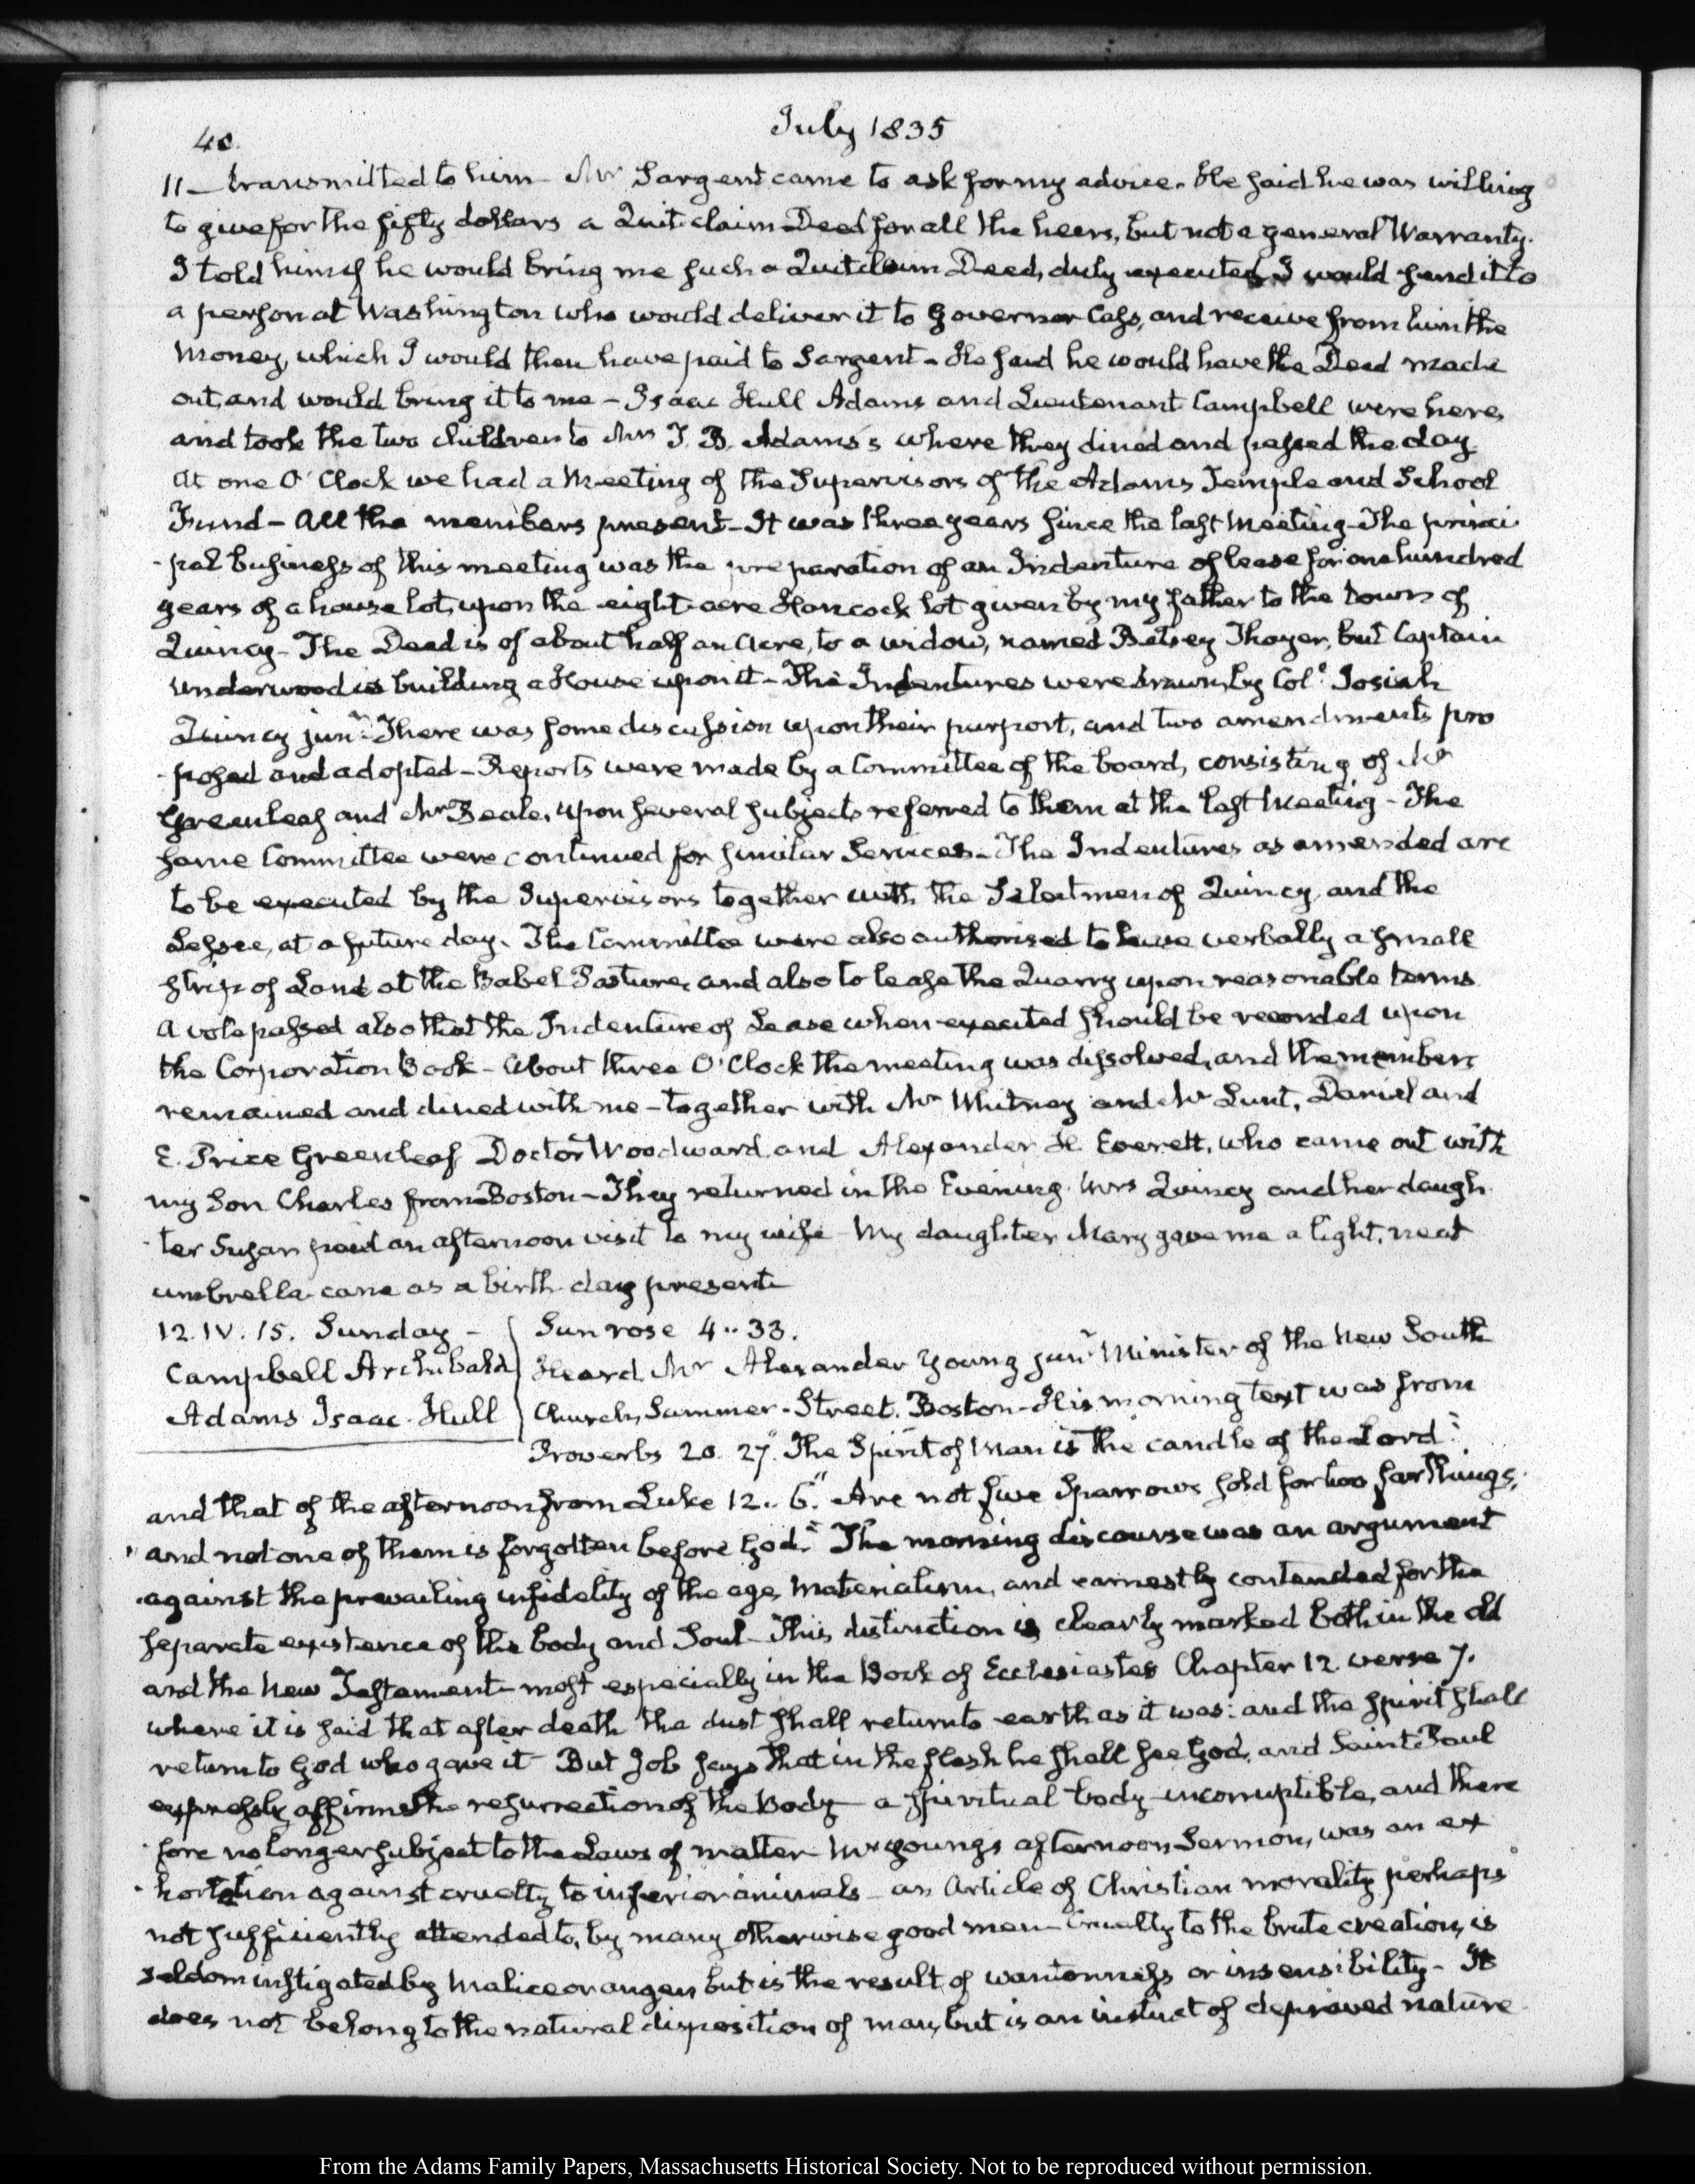 40.
July 1835
11 — transmitted to him — Mr Sargent came to ask for my advice. He said he was willing
to give for the fifty dollars a Quit-claim Deed for all the heirs, but not a general Warranty.
I told him if he would bring me such a Quitclaim Deed, duly executed, I would send it to
a person at Washington who would deliver it to Governor Cass, and receive from him the
money, which I would then have paid to Sargent — He said he would have the Deed made
out, and would bring it to me — Isaac Hull Adams and Lieutenant Campbell were here,
and took the two children to Mrs T. B. Adams's where they dined and passed the day
At one O'Clock we had a Meeting of the Supervisors of the Adams Temple and School
Fund — All the members present — It was three years since the last Meeting — The princi-
-pal business of this meeting was the preparation of an Indenture of lease for one hundred
years of a house lot, upon the eight-acre Hancock lot given by my father to the town of
Quincy — The Deed is of about half an Acre, to a widow, named Betsey Thayer, but Captain
Underwood is building a House upon it — The Indentures were drawn by Col. Josiah
Quincy junr. There was some discussion upon their purport, and two amendments pro
-posed and adopted — Reports were made by a Committee of the board, consisting of Mr
Greenleaf and Mr Beale, upon several subjects referred to them at the last Meeting — The
same Committee were continued for similar Services — The Indentures as amended are
to be executed by the Supervisors together with the Selectmen of Quincy, and the
Lessee, at a future day. The Committee were also authorised to lease verbally a small
strip of Land at the Babel Pasture, and also to lease the Quarry upon reasonable terms.
A vote passed also that the Indenture of Lease when executed should be recorded upon
the Corporation Book — About three O'Clock the meeting was dissolved, and the members
remained and dined with me — together with Mr Whitney and Mr Lunt, Daniel and
E. Price Greenleaf Doctor Woodward and Alexander H. Everett, who came out with
my Son Charles from Boston — They returned in the Evening. Mrs Quincy and her daugh
-ter Susan paid an afternoon visit to my wife — My daughter Mary gave me a light, neat
umbrella-cane as a birth day present
12. IV. 15. Sunday —
Campbell Archibald
Adams Isaac. Hull
Sun rose 4..33.
Heard Mr Alexander Young junr Minister of the New South
Church, Summer-Street, Boston — His morning text was from
Proverbs 20. 27. "The Spirit of Man is the candle of the Lord":
and that of the afternoon from Luke 12..6. "Are not five Sparrows sold for two farthings,
"and not one of them is forgotten before God." The morning discourse was an argument
against the prevailing infidelity of the age, Materialism, and earnestly contended for the
separate existence of the body and Soul — This distinction is clearly marked both in the old
and the New Testament — most especially in the Book of Ecclesiastes Chapter 12. verse 7.
where it is said that after death the dust shall return to earth as it was: and the spirit shall
return to God who gave it — But Job says that in the flesh he shall see God, and Saint Paul
expressly affirms the resurrection of the Body — a spiritual body — incorruptible, and there
-fore no longer subject to the Laws of matter — Mr Youngs afternoon Sermon, was an ex
-hortation against cruelty to inferior animals — an Article of Christian morality perhaps
not sufficiently attended to, by many otherwise good men — Cruelty to the brute creation, is
seldom instigated by Malice or anger, but is the result of wantonness or insensibility — It
does not belong to the natural disposition of man, but is an instinct of depraved nature
From the Adams Family Papers, Massachusetts Historical Society. Not to be reproduced without permission.